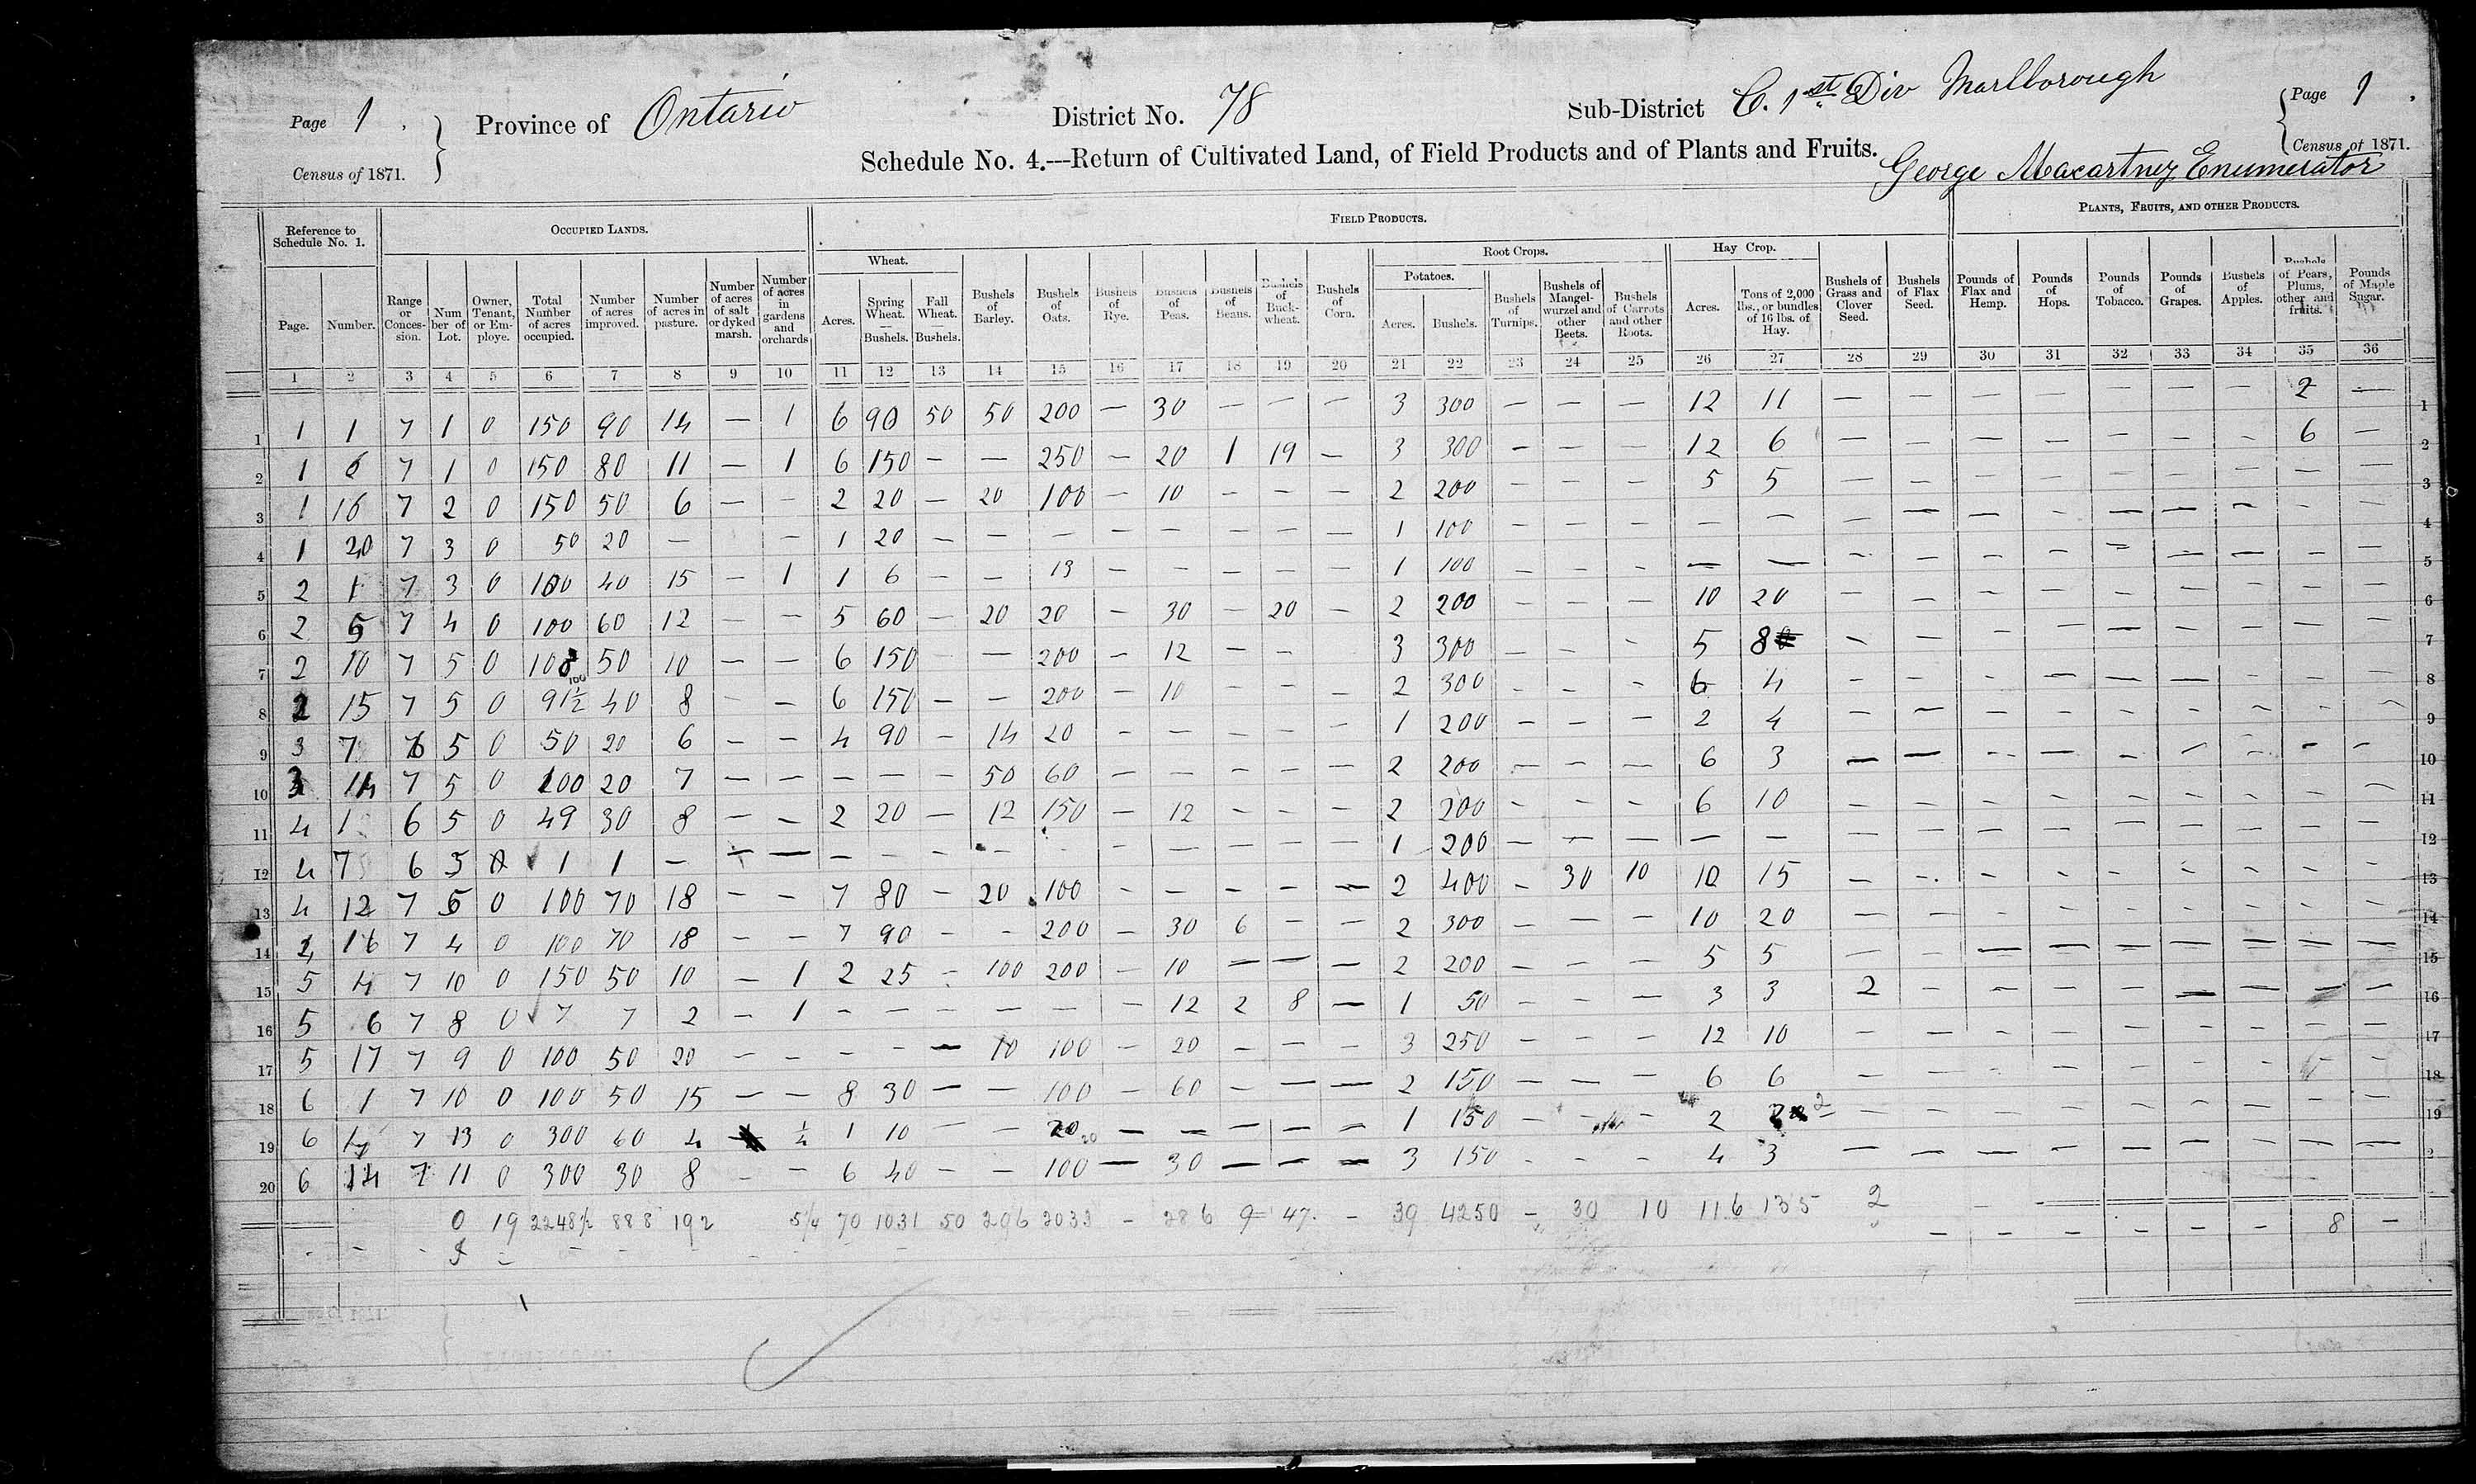 Page 1. Province of Ontario District No. 78 Sub-District C. 1st Div Marlborough Page 1.
Census of 1871. Schedule No. 4.---Return of Cultivated Land, of Field Products and of Plants and Fruits. Census of 1871.
George Macartney Enumerator
Reference to Schedule No. 1. OCCUPIED LANDS. FIELD PRODUCTS. PLANTS, FRUITS, AND OTHER PRODUCTS.
Wheat. Root Crops. Hay Crop.
Potatoes.
Page. Number. Range or Conces-sion. Num ber of Lot. Owner, Tenant, or Em-ploye. Total Number of acres occupied. Number of acres improved. Number of acres in pasture. Number of acres of salt or dyked marsh. Number of acres in gardens and orchards Acres. Spring Wheat. — Bushels. Fall Wheat. — Bushels. Bushels of Barley. Bushels of Oats. Bushels of Rye. Bushels of Peas. Bushels of Beans. Bushels of Buck-wheat. Bushels of Corn. Acres. Bushels. Bushels of Turnips. Bushels of Mangel-wurzel and other Beets. Bushels of Carrots and other Roots. Acres. Tons of 2,000 lbs., or bundles of 16 lbs. of Hay. Bushels of Grass and Clover Seed. Bushels of Flax Seed. Pounds of Flax and Hemp. Pounds of Hops. Pounds of Tobacco. Pounds of Grapes. Bushels of Apples. Bushels of Pears, Plums, other and fruits. Pounds of Maple Sugar.
1 2 3 4 5 6 7 8 9 10 11 12 13 14 15 16 17 18 19 20 21 22 23 24 25 26 27 28 29 30 31 32 33 34 35 36
1 1 1 7 1 0 150 90 14 — 1 6 90 50 50 200 — 30 — — — 3 300 — — — 12 11 — — — — — — — 2 — 1
2 1 6 7 1 0 150 80 11 — 1 6 150 — — 250 — 20 1 19 — 3 300 — — — 12 6 — — — — — — — 6 — 2
3 1 16 7 2 0 150 50 6 — — 2 20 — 20 100 — 10 — — — 2 200 — — — 5 5 — — — — — — — — — 3
4 1 20 7 3 0 50 20 — — 1 20 — — — — — — — — 1 100 — — — — — — — — — — — — — — 4
5 2 1 7 3 0 100 40 15 — 1 1 6 — — 13 — — — — — 1 100 — — — — — — — — — — — — — — 5
6 2 5 7 4 0 100 60 12 — — 5 60 — 20 20 — 30 — 20 — 2 200 — — — 10 20 — — — — — — — — — 6
7 2 10 7 5 0 108 50 10 — — 6 150 — — 200 — 12 — — 3 300 — — — 5 8 — — — — — — — — — 7
8 2 15 7 5 0 91½ 40 8 — 6 150 — — 200 — 10 — — — 2 300 — — — 6 4 — — — — — — — — — 8
9 3 7 5 0 50 20 6 — — 4 90 — 14 20 — — — — — 1 200 — — — 2 4 — — — — — — — — — 9
10 3 14 7 5 0 100 20 7 — — — — — 50 60 — — — — — 2 200 — — — 6 3 — — — — — — — — — 10
11 4 1 6 5 0 49 30 8 — — 2 20 — 12 150 — 12 — — — 2 200 — — — 6 10 — — — — — — — — — 11
12 4 7 6 5 1 1 — — — — — — — — — — — — — 1 200 — — — — — — — — — — — — — — 12
13 4 12 7 5 0 100 70 18 — — 7 80 — 20 100 — — — — — 2 400 — 30 10 10 15 — — — — — — — — — 13
14 16 7 4 0 100 70 18 — — 7 90 — — 200 — 30 6 — — 2 300 — — — 10 20 — — — — — — — — — 14
15 5 4 7 10 0 150 50 10 — 1 2 25 — 100 200 — 10 — — — 2 200 — — — 5 5 — — — — — — — — — 15
16 5 6 7 8 0 7 7 2 — 1 — — — — — — 12 2 8 — 1 50 — — — 3 3 2 — — — — — — — — 16
17 5 17 7 9 0 100 50 20 — — — — — 10 100 — 20 — — — 3 250 — — — 12 10 — — — — — — — — — 17
18 6 1 7 10 0 100 50 15 — — 8 30 — — 100 — 60 — — — 2 150 — — — 6 6 — — — — — — — — 18
19 6 7 13 0 300 60 4 ¼ 1 10 — — 20 20 — — — — — 1 150 — — — 2 2 — — — — — — — — — 19
20 6 14 7 11 0 300 30 8 — — 6 40 — — 100 — 30 — — — 3 150 — — — 4 3 — — — — — — — — — 2
0 19 2248½ 888 192 5¼ 70 1031 50 296 2033 — 286 9 47 — 39 4250 — 30 10 116 135 2 — — — — — — 8 —